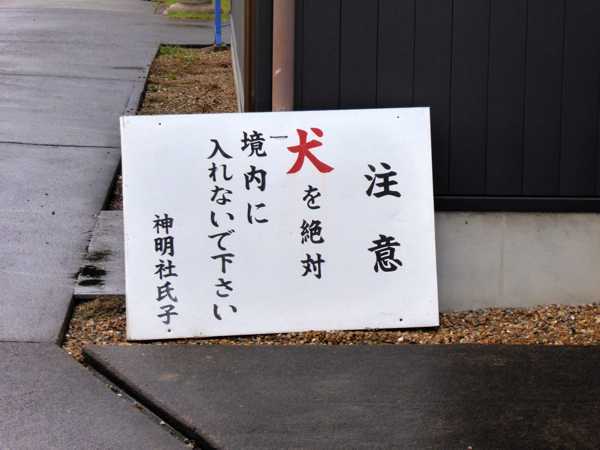 注意
犬を絶対
境内に
入れないで下さい
神明社氏子